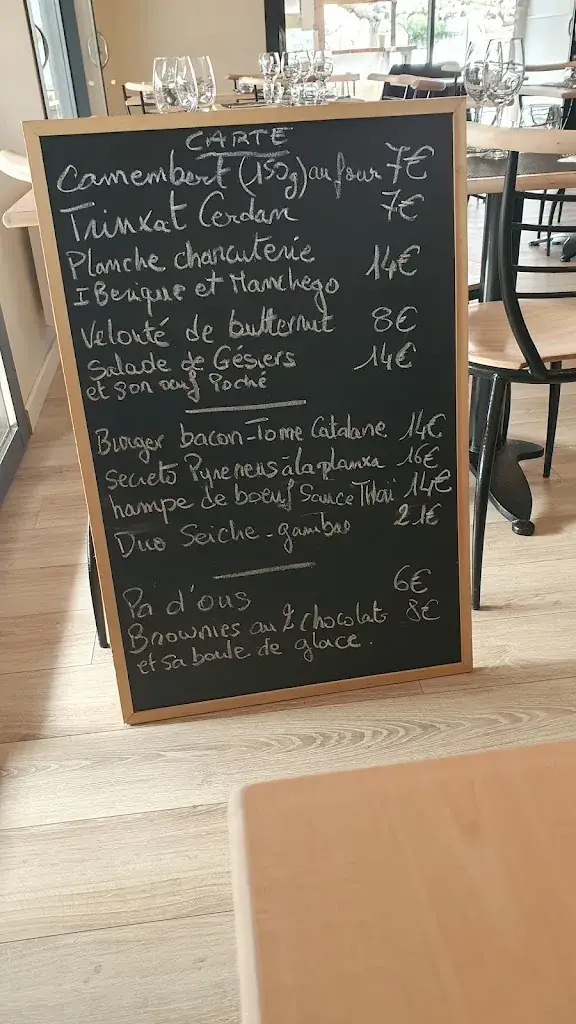 CARTE
Camembert (150g) au four 7€
Trinxat Cerdan 7€
Planche charcuterie
IBerique et Manchego 14€
Velouté de butternut 8€
Salade de Gésiers 14€
et son œuf Poché
Burger bacon-Tome Catalane 14€
Secreto Pyreneus à la planxa 16€
hampe de boeuf Sauce Thaï 14€
Duo Seiche-gambas 21€
Pa d'ous 6€
Brownies au 2 chocolats 8€
et sa boule de glace.